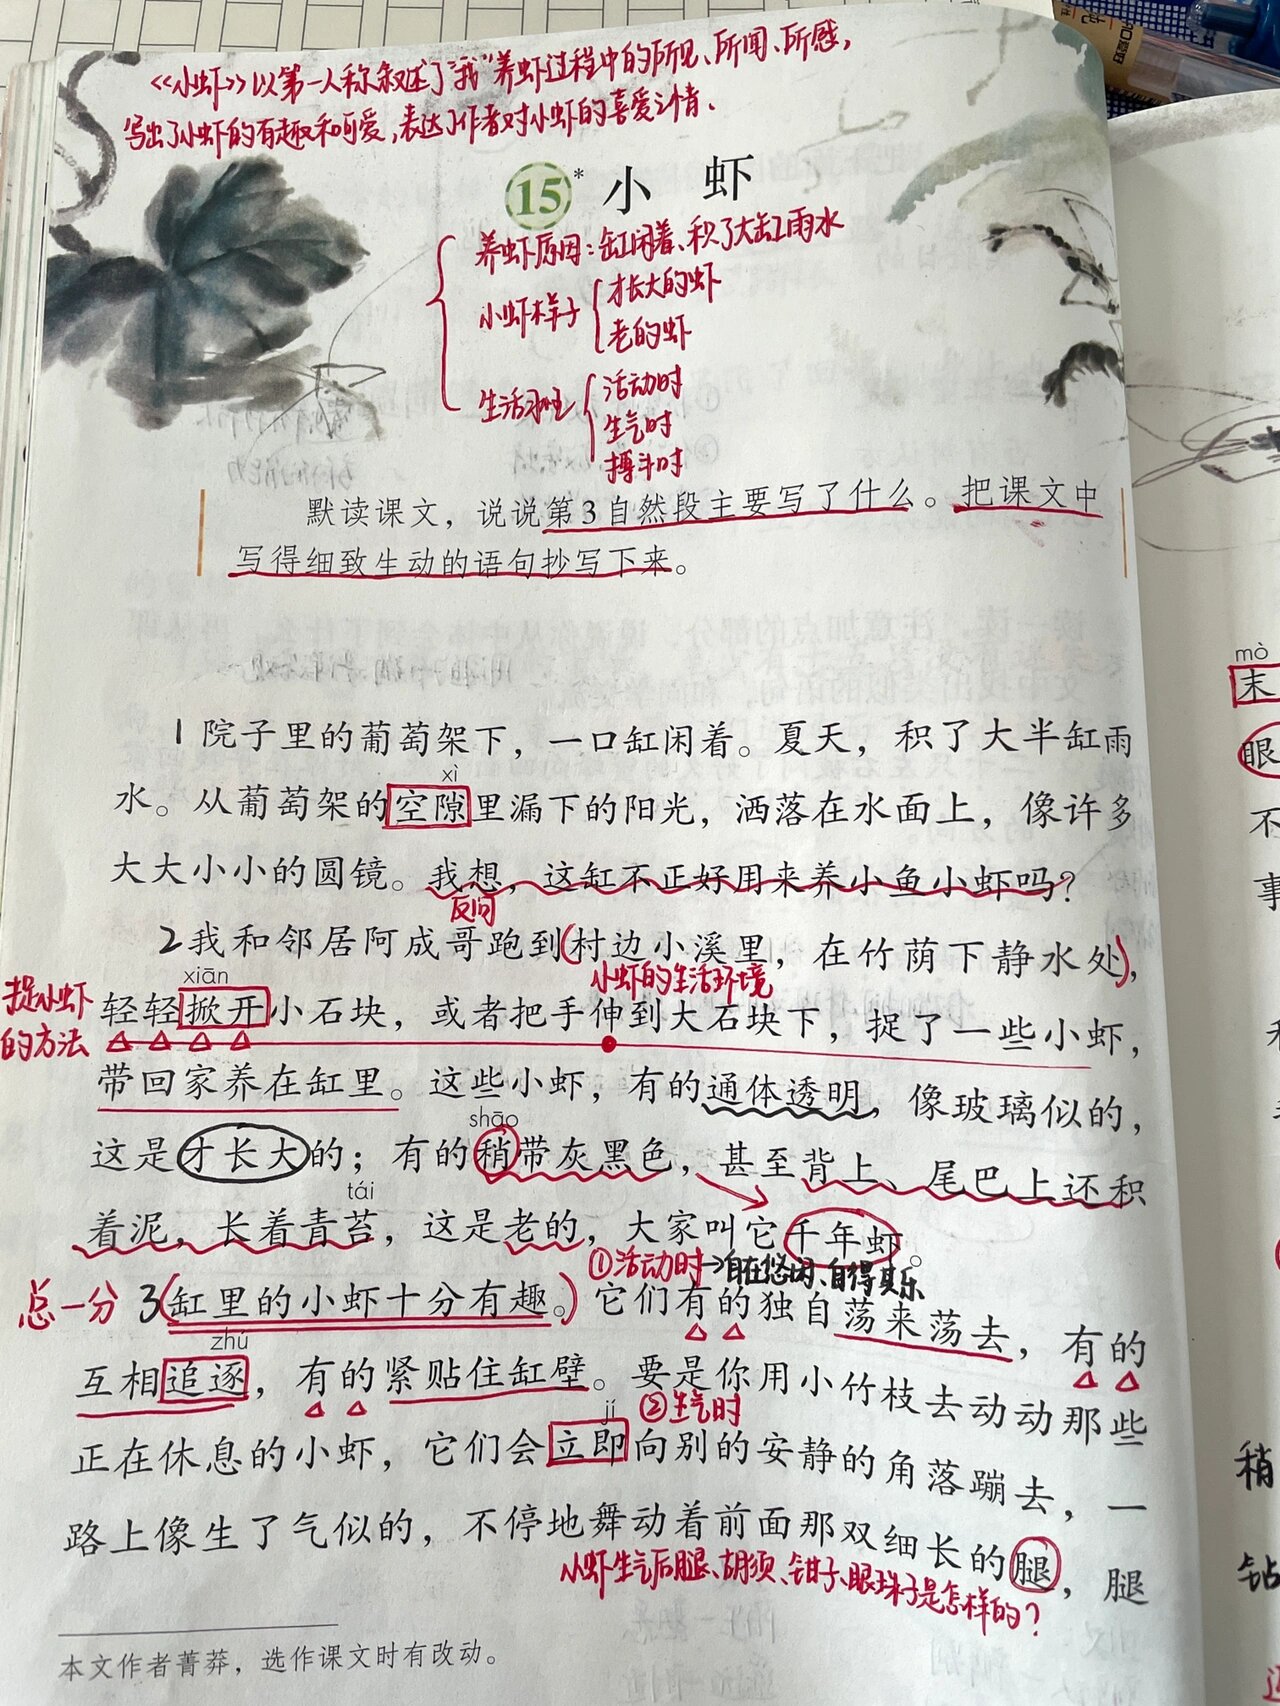 《小虾》以第一人称叙述了"我"养虾过程中的所见、所闻、所感,
写出了小虾的有趣和可爱,表达了作者对小虾的喜爱之情.
15* 小 虾
养虾原因:缸闲着、积了大缸雨水
小虾样子
才长大的虾
老的虾
生活习性
活动时
生气时
搏斗时
默读课文，说说第3自然段主要写了什么。把课文中
写得细致生动的语句抄写下来。
1 院子里的葡萄架下，一口缸闲着。夏天，积了大半缸雨
xì
水。从葡萄架的空隙里漏下的阳光，洒落在水面上，像许多
大大小小的圆镜。我想，这缸不正好用来养小鱼小虾吗？
反问
2 我和邻居阿成哥跑到(村边小溪里，在竹荫下静水处)，
小虾的生活环境
捉小虾
的方法
xiān
轻轻掀开小石块，或者把手伸到大石块下，捉了一些小虾，
带回家养在缸里。这些小虾，有的通体透明，像玻璃似的，
shāo
这是才长大的；有的稍带灰黑色，甚至背上、尾巴上还积
tái
着泥，长着青苔，这是老的，大家叫它千年虾。
①活动时→自在悠闲、自得其乐
总一分 3(缸里的小虾十分有趣。)它们有的独自荡来荡去，有的
zhú
互相追逐，有的紧贴住缸壁。要是你用小竹枝去动动那些
②生气时
jí
正在休息的小虾，它们会立即向别的安静的角落蹦去，一
路上像生了气似的，不停地舞动着前面那双细长的腿，腿
从虾生气后腿、胡须、钳子、眼珠子是怎样的?
本文作者菁莽，选作课文时有改动。
mò
末
眼
不
事
稍
钻